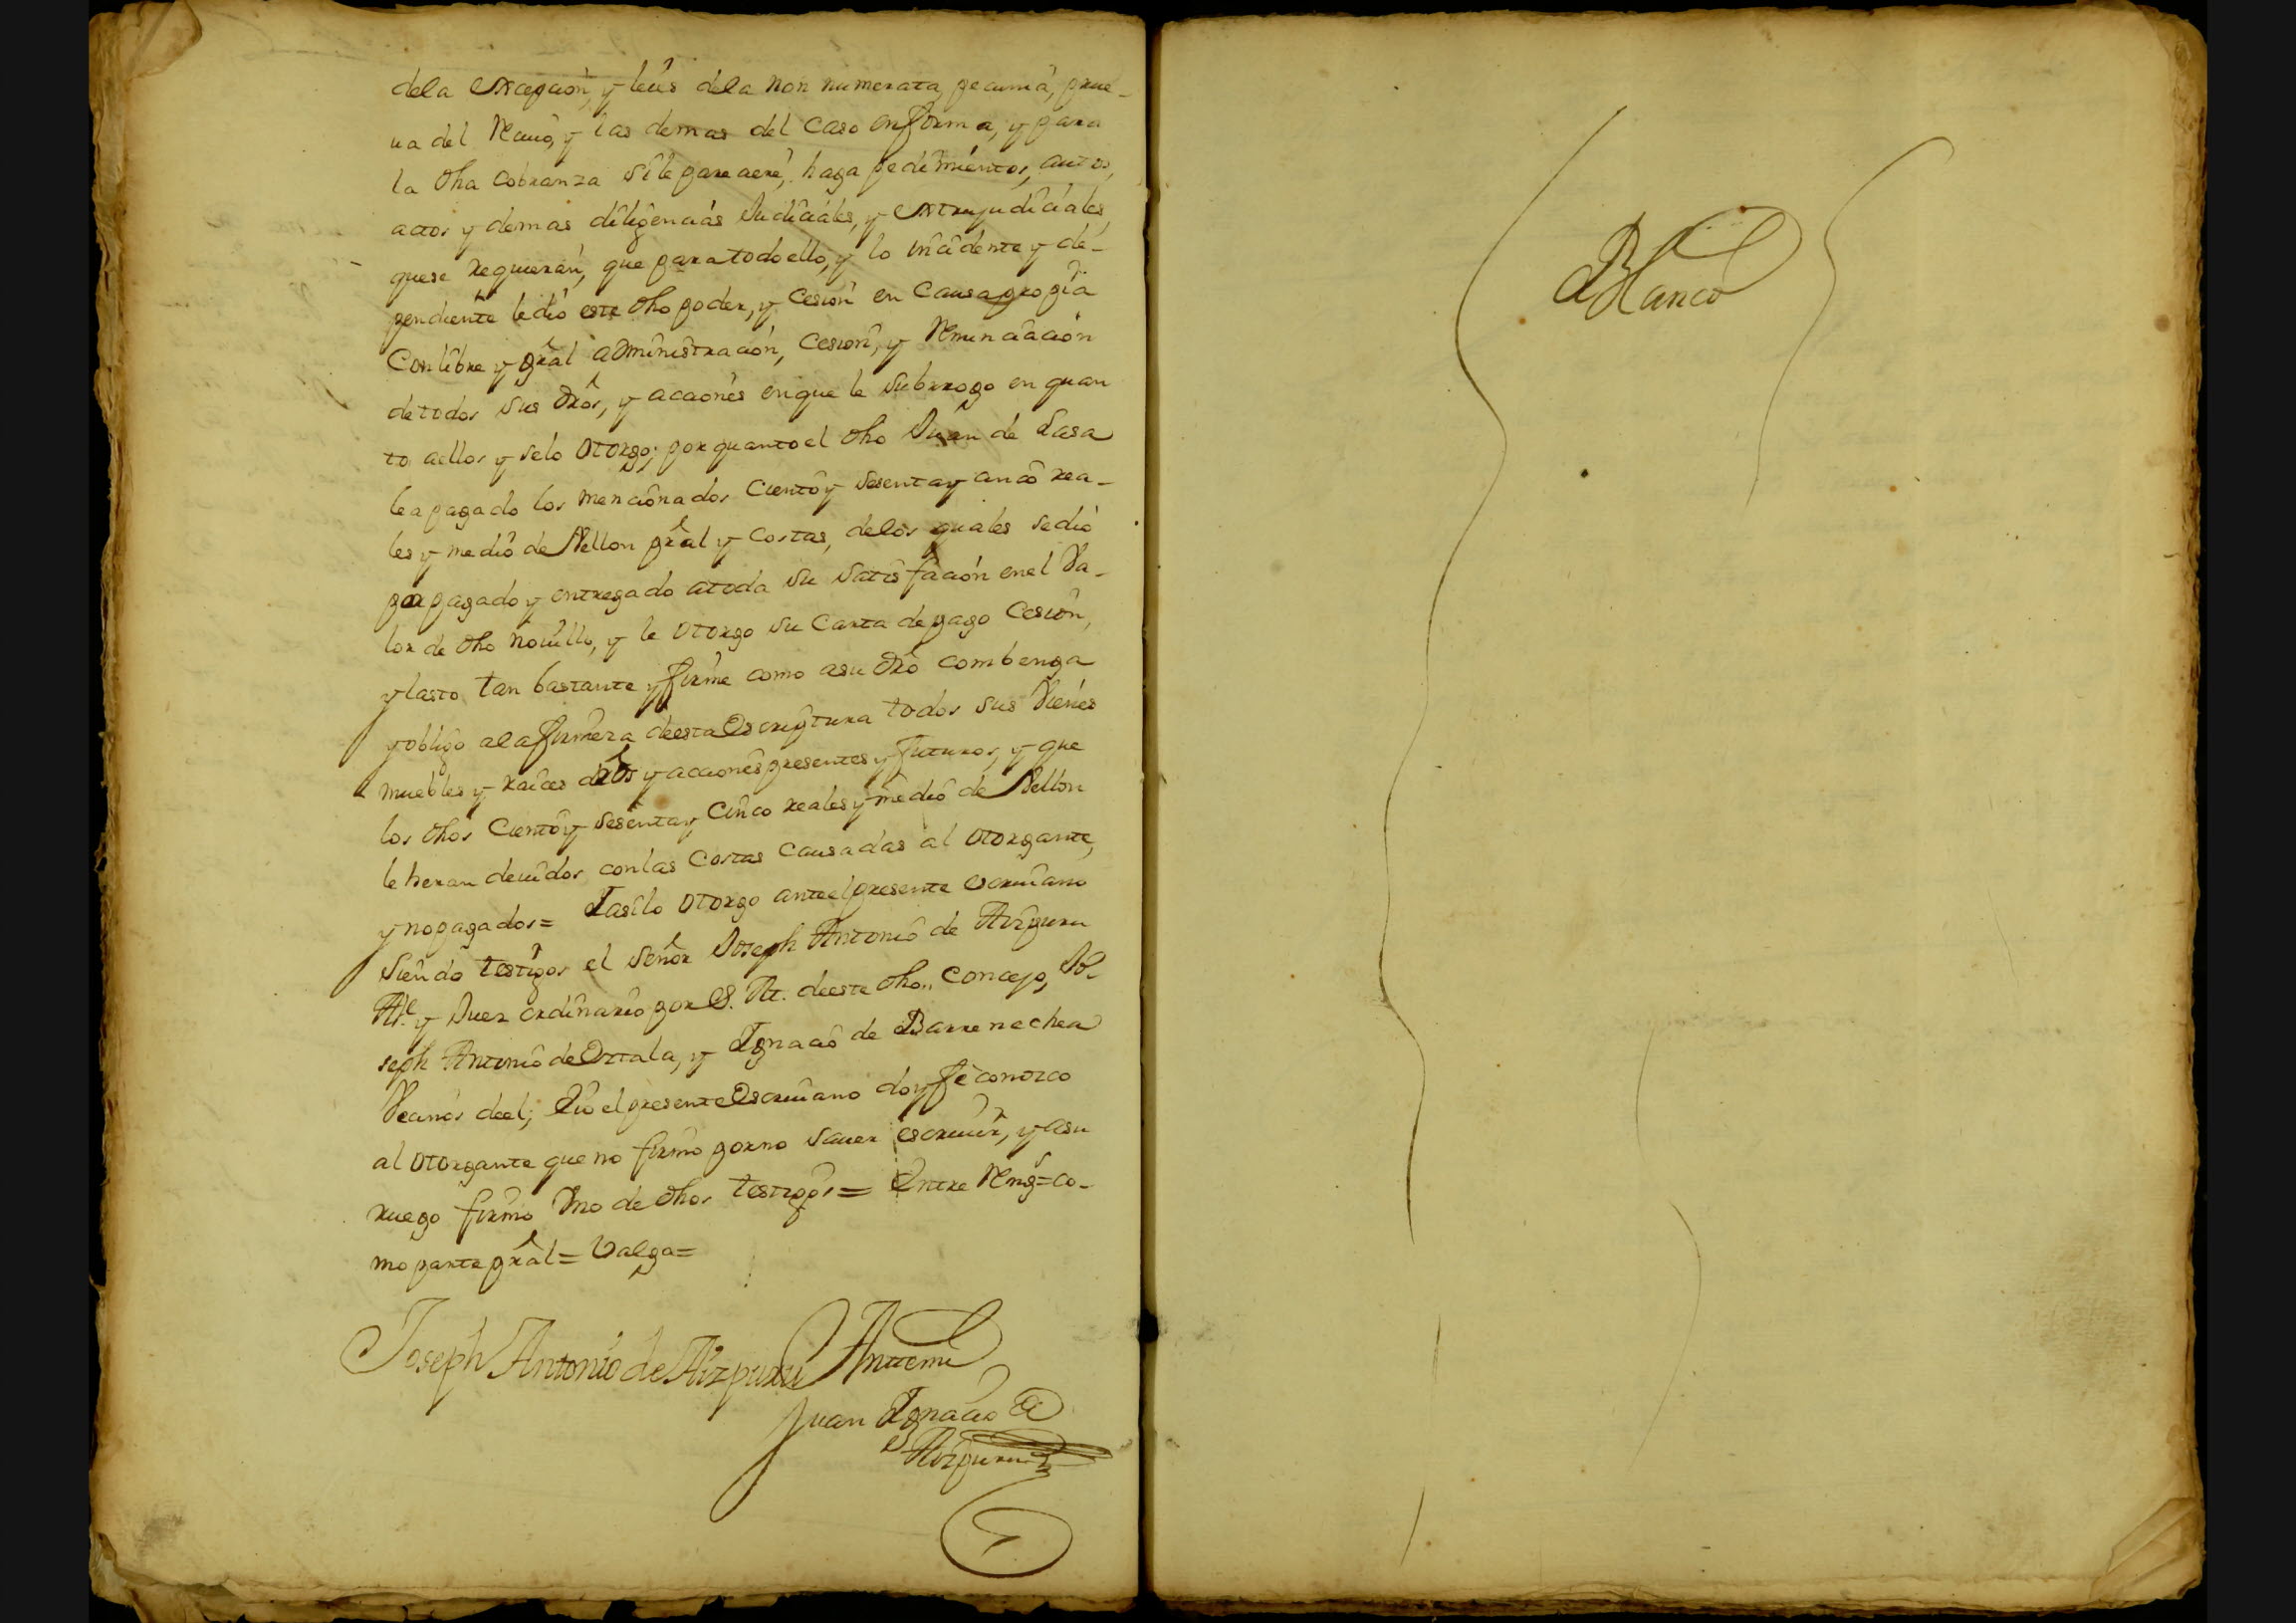 dela excepcion, y leies dela non numerata pecunia, prue-
ua del Reciuo, y las demas del caso en forma, y para
la dha cobranza si le pareciere, haga pedimientos, autos,
actos y demas diligencias Judiciales, y extrajudiciales,
que se requieran, que para todo ello, y lo incidente y de-
pendiente le dio este dho poder, y cesion en causa propia
con libre y gral administracion, cesion, y Renunciacion
de todos sus dros, y acciones en que le subrrogo en quan
to aellos y selo otorgo; por quanto el dho Juan de Lasa
le a pagado los mencionados ciento y sesenta y cinco rea-
les y medio de Vellon gral y costas, delos quales se dio
por pagado y entregado a toda su satisfacion enel Va-
lor de dho nouillo, y le otorgo su carta de pago cesion,
y lasto, tan bastante y firme como asu dro combenga
y obligo ala firmeza de esta Escriptura todos sus Vienes
muebles y raices dros y acciones presentes y futuros, y que
los dhos ciento y sesenta y cinco reales y medio de Vellon
le heran deuidos con las costas causadas al otorgante,
y no pagados = I asi lo otorgo ante el presente escriuano
siendo testigos el señor Joseph Antonio de Aizpuru
Alle y Juez ordinario por S. M. de este dho. concejo, Jo-
seph Antonio de Oztala, y Ignacio de Barrenechea
Vecinos de el; E io el presente Escriuano doy fe conozco
al otorgante que no firmo por no sauer escriuir, y asu
ruego firmo Vno de dhos testigos = Entre Rengs = co-
mo parte gral = Valga =
Joseph Antonio de Aizpuru Antemi
Juan Ignacio de
Aizpuru
Blanco